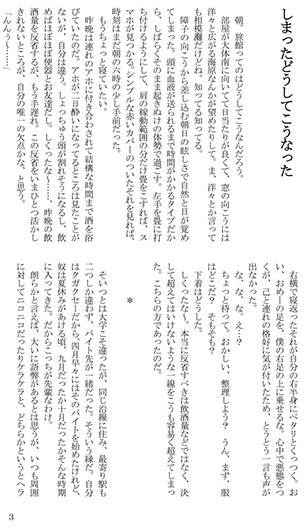 しまったどうしてこうなった
朝、旅館ってのはどうしてこうなんだろう。
部屋が大体南に向いてて日当たりが良くて、窓の向こうには
洋々と広がる海原なんかが望めたりして。ま、洋々とか言って
も相模灘だけどね。知ってる知ってる。
障子の向こうから差し込む朝日の眩しさで自然と目が覚め
てしまった。頭に血液が送られるまで時間がかかるタイプだか
ら、しばらくそのまま起きぬけの体勢で過ごす。左手を畳に打
ち付けるようにして、肩の稼動範囲の分だけ畳をこすれば、ス
マホが見つかる。シンプルな赤いカバーのついたそれを見れば、
時刻はまだ朝の六時の少し手前だった。
もうちょっと寝ていたい。
昨晩は連れのアホに付き合わされて結構な時間まで酒を浴
びていたのだ。アホが二日酔いになってるところは見たことが
ないが、自分は違う。しょっちゅう頭が割れそうになるし、飲
めばほぼほぼ便器とお友達だし。しくったな……、昨晩の飲
酒量を反省するが、もう手遅れ。この反省をいまひとつ活かし
きれないところが、自分の唯一の欠点かな、と思う。
「んんぅ～……」
右横で寝返ったそれが自分の右半身にベタリとくっつく。お
い、おめーの足を、僕の右足の上に乗せるな。心中で悪態をつ
くが、己と連れの格好に気が付いたため、とうとう一言も声が
出なかった。
な、な、なぇ…？
ちょっと待って、おかしい、整理しよう？　うん、まず、服
はどこだ？　そもそも？
下着はどうした。
しくったない、本当に反省すべきは飲酒量などではなく、決
して超えてはいけないような一線をこうも容易く超えてしまっ
た。こちらの方であったのだ。
＊
そいつとは大学こそ違ったが、同じ沿線に住み、最寄り駅も
二つしか違わず、バイト先が一緒だった。そういう縁だ。自分
はクガクセーだから、四月早々にはそのバイトを始めたけれど、
奴は夏休みがあける頃、九月だったか十月だったかそんな時期
に入ってきた。だからこっちが先輩なわけ。
朗らかと言えば、大いに語弊があるとは思うが、いつも周囲
に対してニコニコだったりケラケラと、どちらかというとヘラ
3